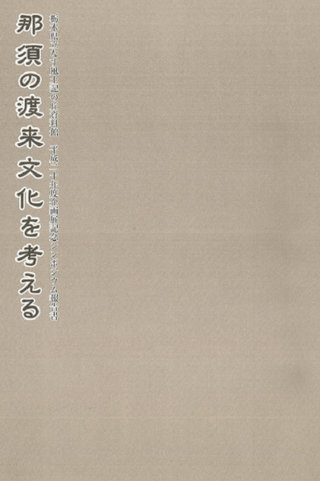 栃木県立なす風土記の丘資料館 平成二十年度企画展記念シンポジウム報告書
那須の渡来文化を考える